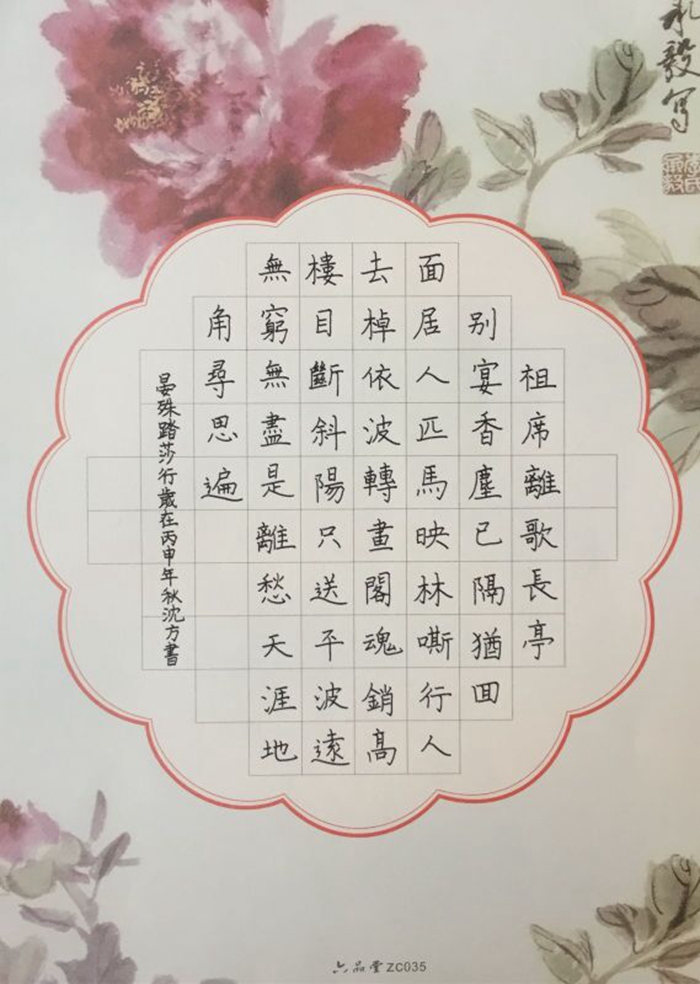 祖席離歌長亭
别宴香塵已隔猶囬
面居人匹馬映林嘶行人
去棹依波轉畫閣魂銷高
樓目斷斜陽只送平波遠
無窮無盡是離愁天涯地
角尋思遍
晏殊踏莎行歲在丙申年秋沈方書
承毅寫
六品堂 ZC035